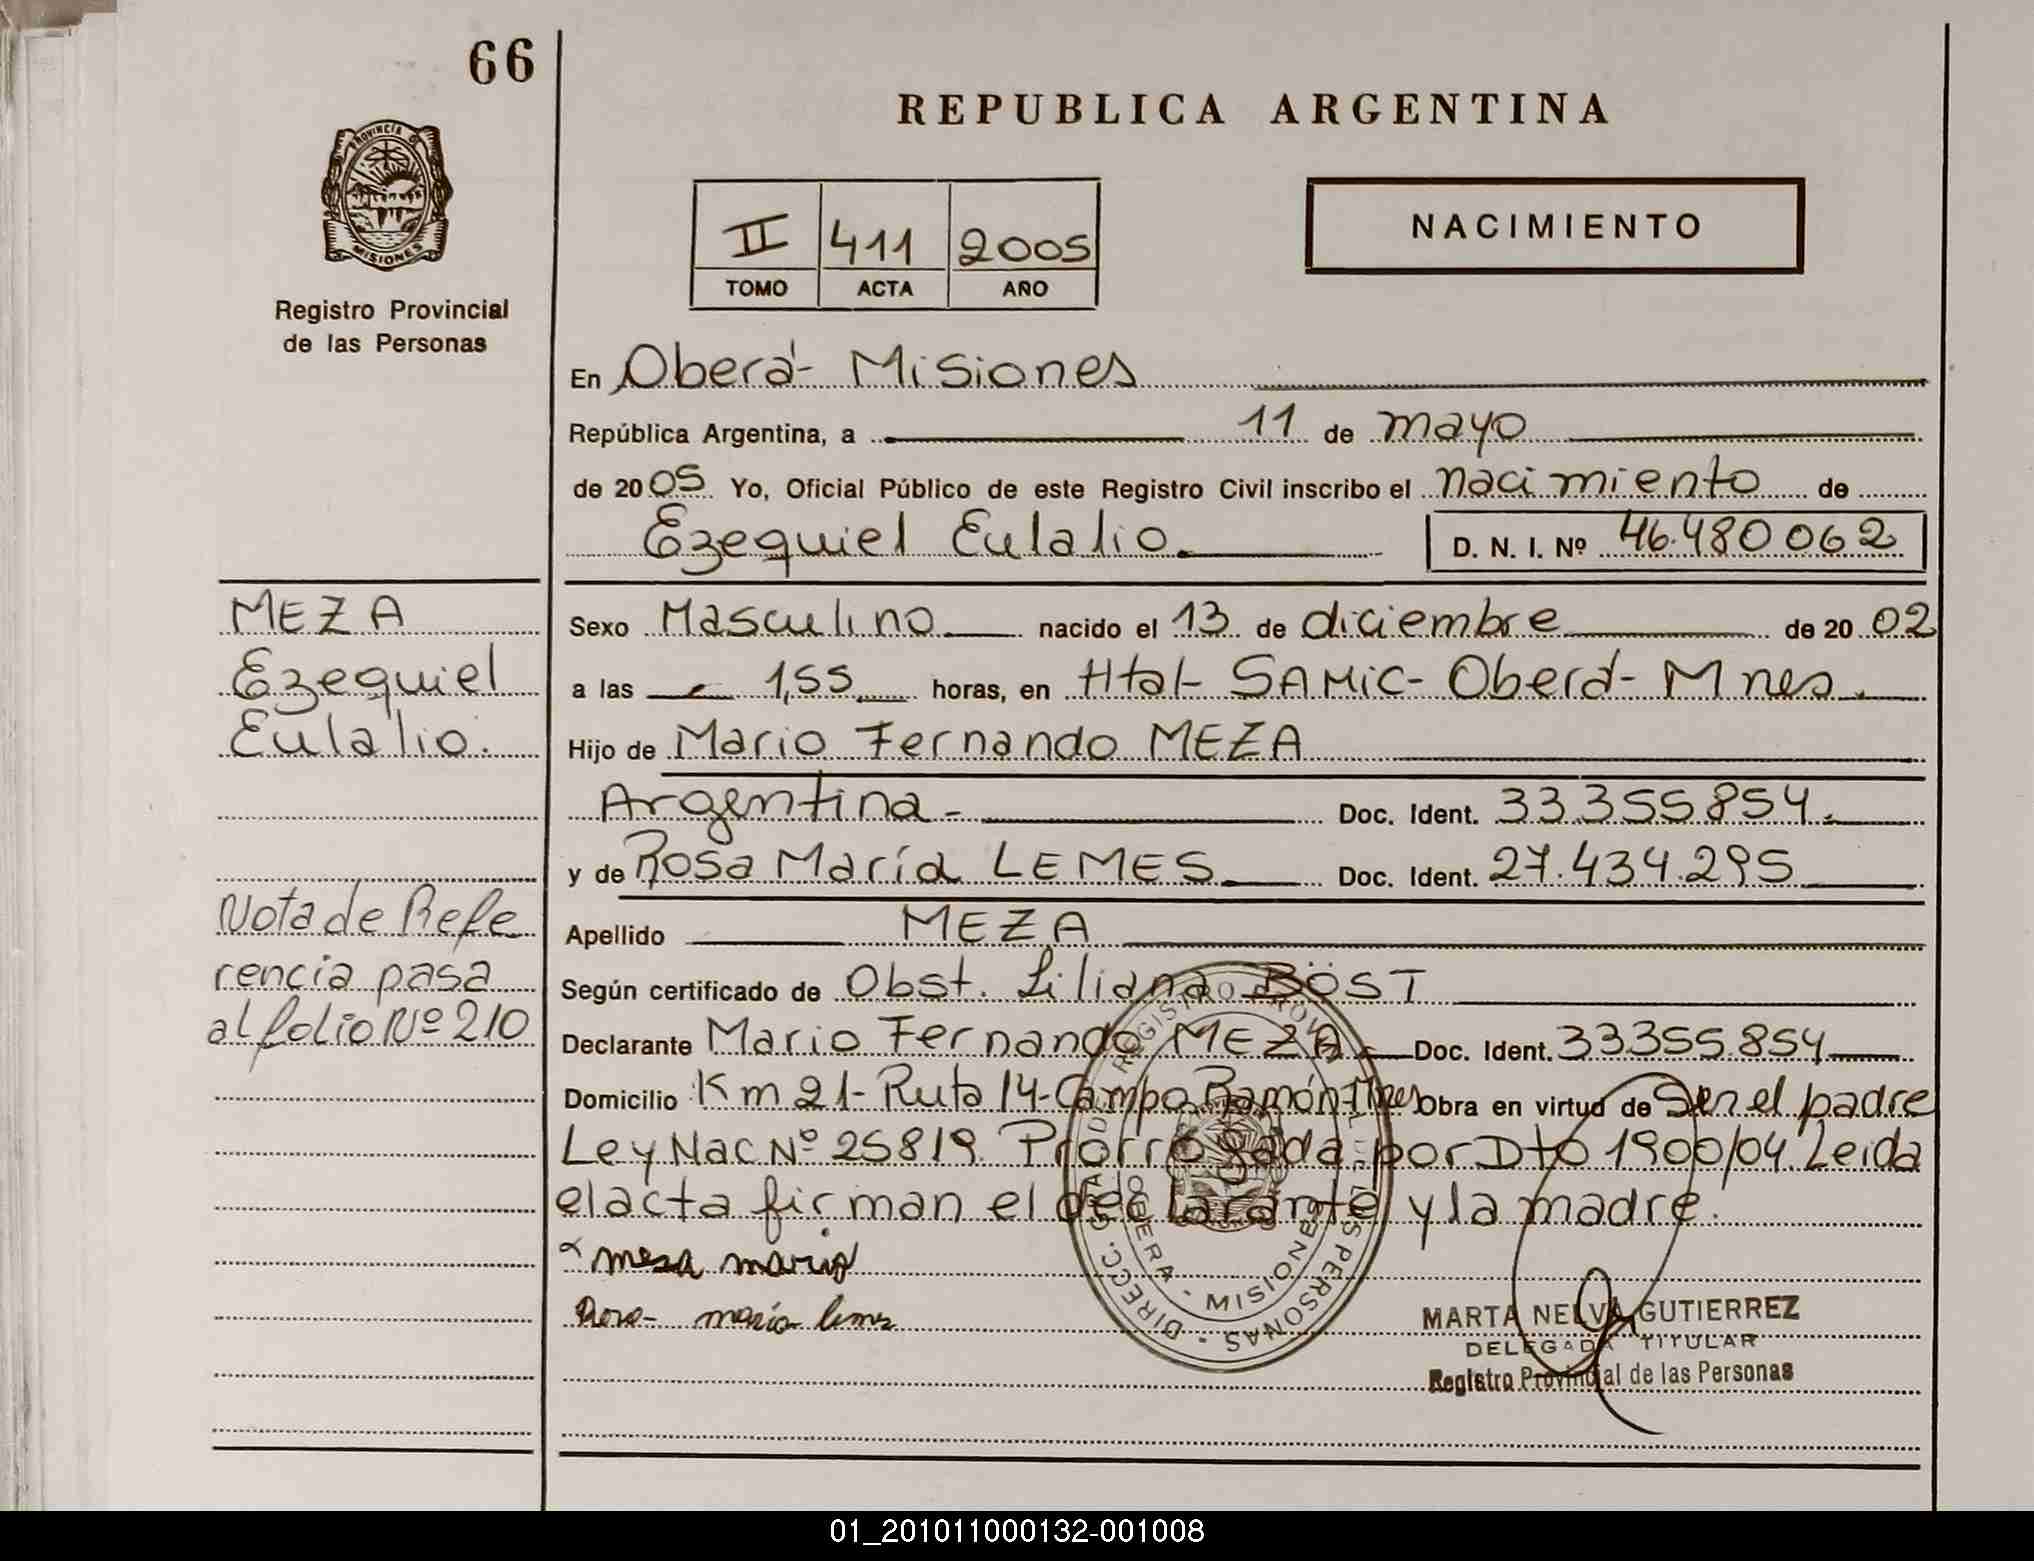 66
REPUBLICA ARGENTINA
PROVINCIA D
MISIONES
Registro Provincial
de las Personas
II 411 2005
TOMO ACTA AÑO
NACIMIENTO
En Oberá - Misiones
República Argentina, a 11 de mayo
de 2005 Yo, Oficial Público de este Registro Civil inscribo el nacimiento de
Ezequiel Eulalio. D. N. I. Nº 46.480062
MEZA
Ezequiel
Eulalio.
Sexo Masculino nacido el 13 de diciembre de 2002
a las 1,55 horas, en Htal- SAMIC- Oberá- Mnes.
Hijo de Mario Fernando MEZA
Argentina - Doc. Ident. 33.355.854.
y de Rosa María LEMES Doc. Ident. 27.434.295
Nota de Refe
rencia pasa
al folio Nº 210
Apellido MEZA
Según certificado de Obst. Liliana BÖST
Declarante Mario Fernando MEZA Doc. Ident. 33355.854
Domicilio Km 21- Ruta 14- Campo Ramón-Mnes Obra en virtud de Ser el padre
Ley Nac Nº 25819. Prorrogada por Dto 1900/04. Leida
el acta firman el declarante y la madre.
mesa mario
Rosa maria lemes
DIRECC. GRAL DE REGISTRO PROVINCIAL DE LAS PERSONAS
OBERA - MISIONES
MARTA NELVA GUTIERREZ
DELEGADA TITULAR
Registro Provincial de las Personas
01_201011000132-001008